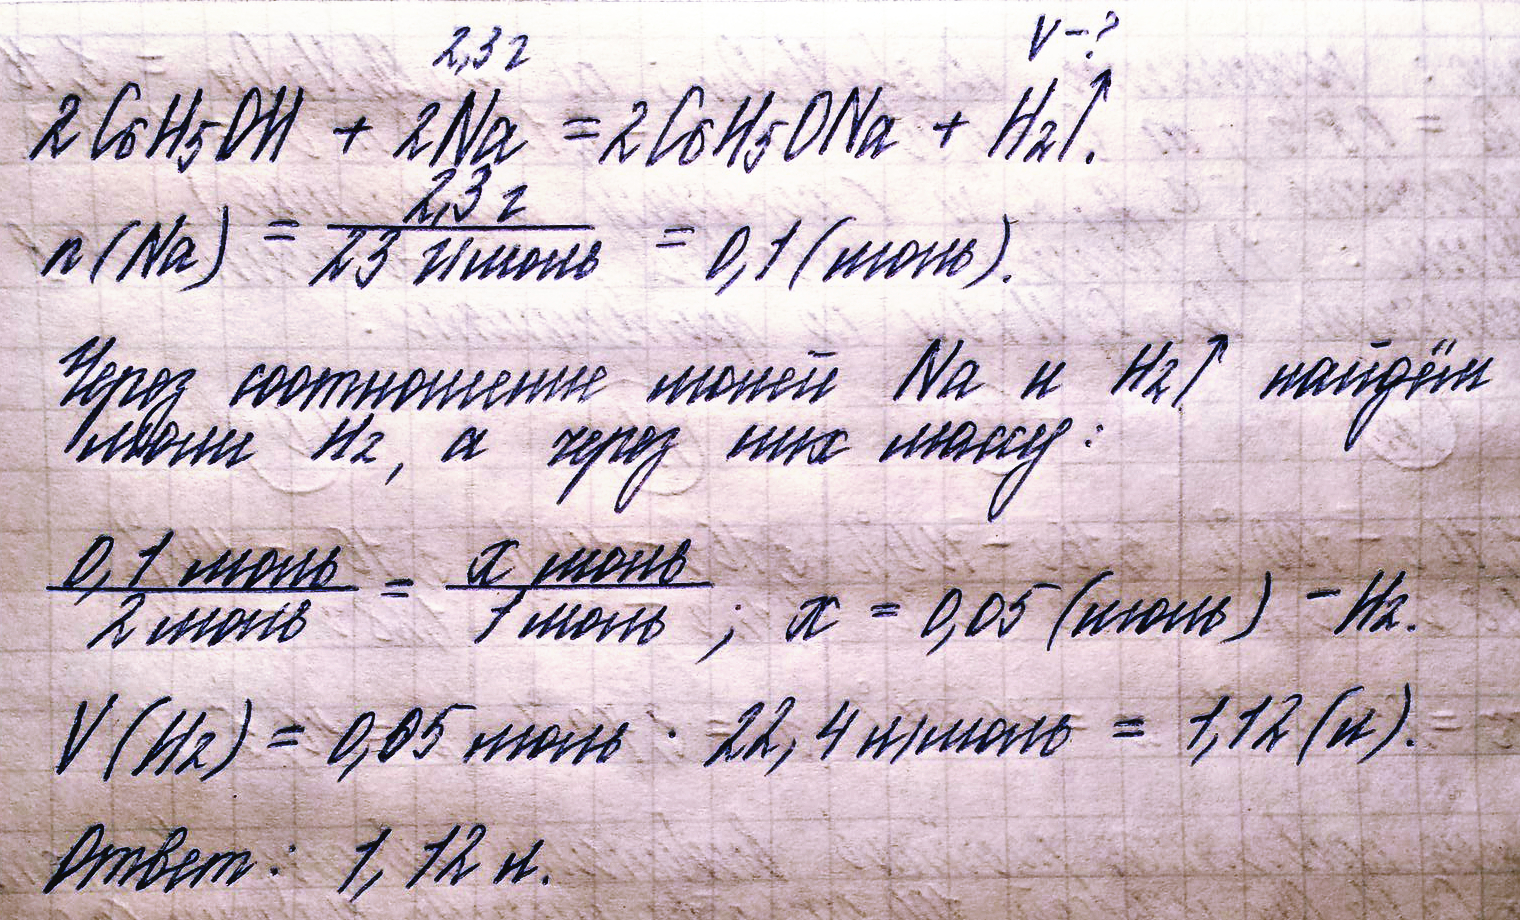 2,3 г V - ?
2C6H5OH + 2Na = 2C6H5ONa + H2↑.
n(Na) = 2,3 г / 23 г/моль = 0,1 (моль).
Через соотношение молей Na и H2↑ найдём
моли H2, а через них массу:
0,1 моль / 2 моль = x моль / 1 моль ; x = 0,05 (моль) - H2.
V(H2) = 0,05 моль · 22,4 л/моль = 1,12 (л).
Ответ: 1,12 л.